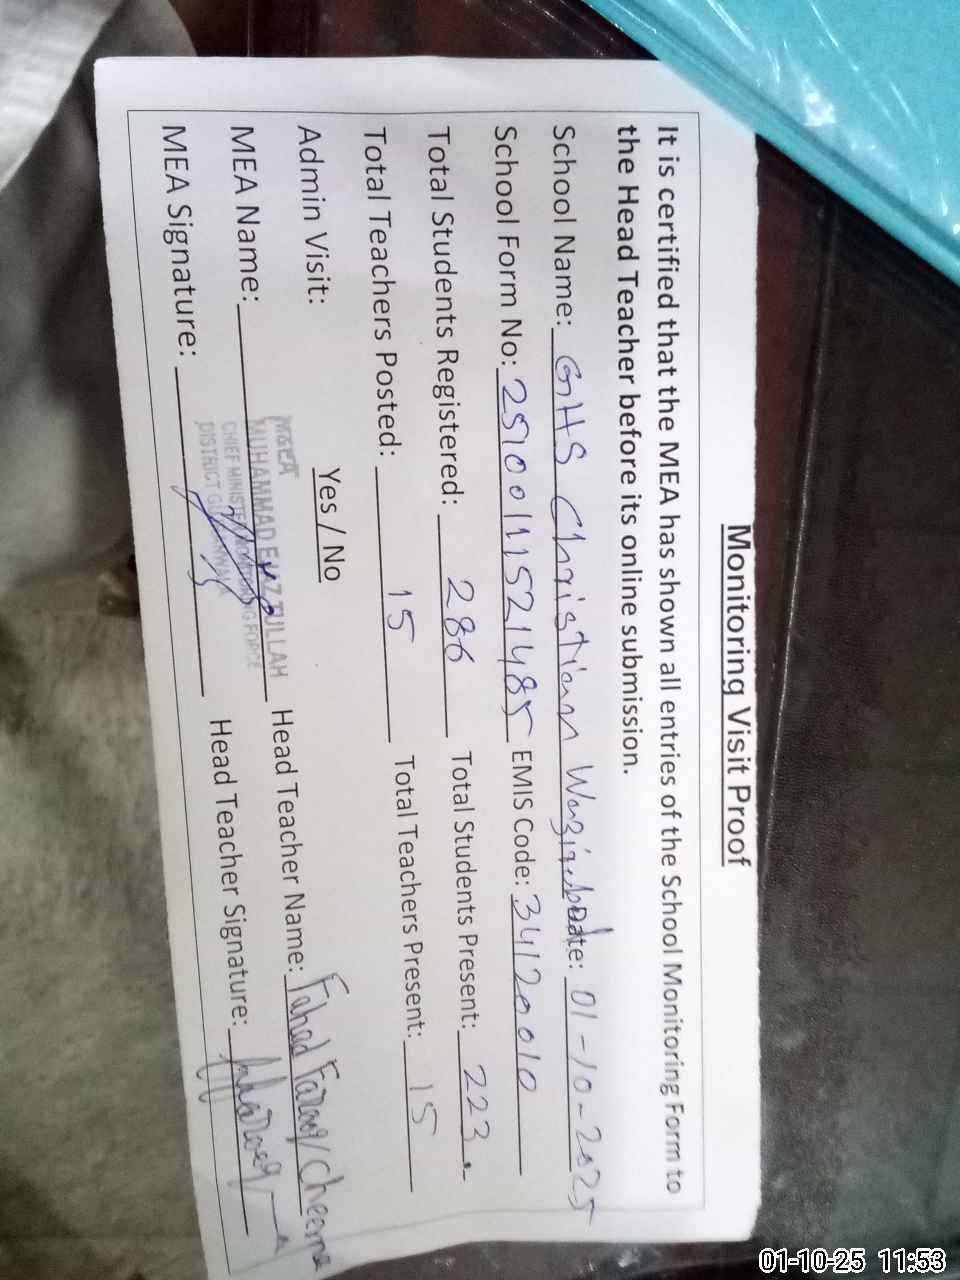 Monitoring Visit Proof
It is certified that the MEA has shown all entries of the School Monitoring Form to
the Head Teacher before its online submission.
School Name: GHS Christian Wazirabad Date: 01-10-2025
School Form No: 2510011521485 EMIS Code: 34120010
Total Students Registered: 286 Total Students Present: 223
Total Teachers Posted: 15 Total Teachers Present: 15
Admin Visit: Yes / No
MEA Name: Head Teacher Name: Fahad Farooq Cheema
MEA Signature: Head Teacher Signature:
M&EA
MUHAMMAD ULLAH
CHIEF FORCE
DISTRICT
01-10-25 11:53